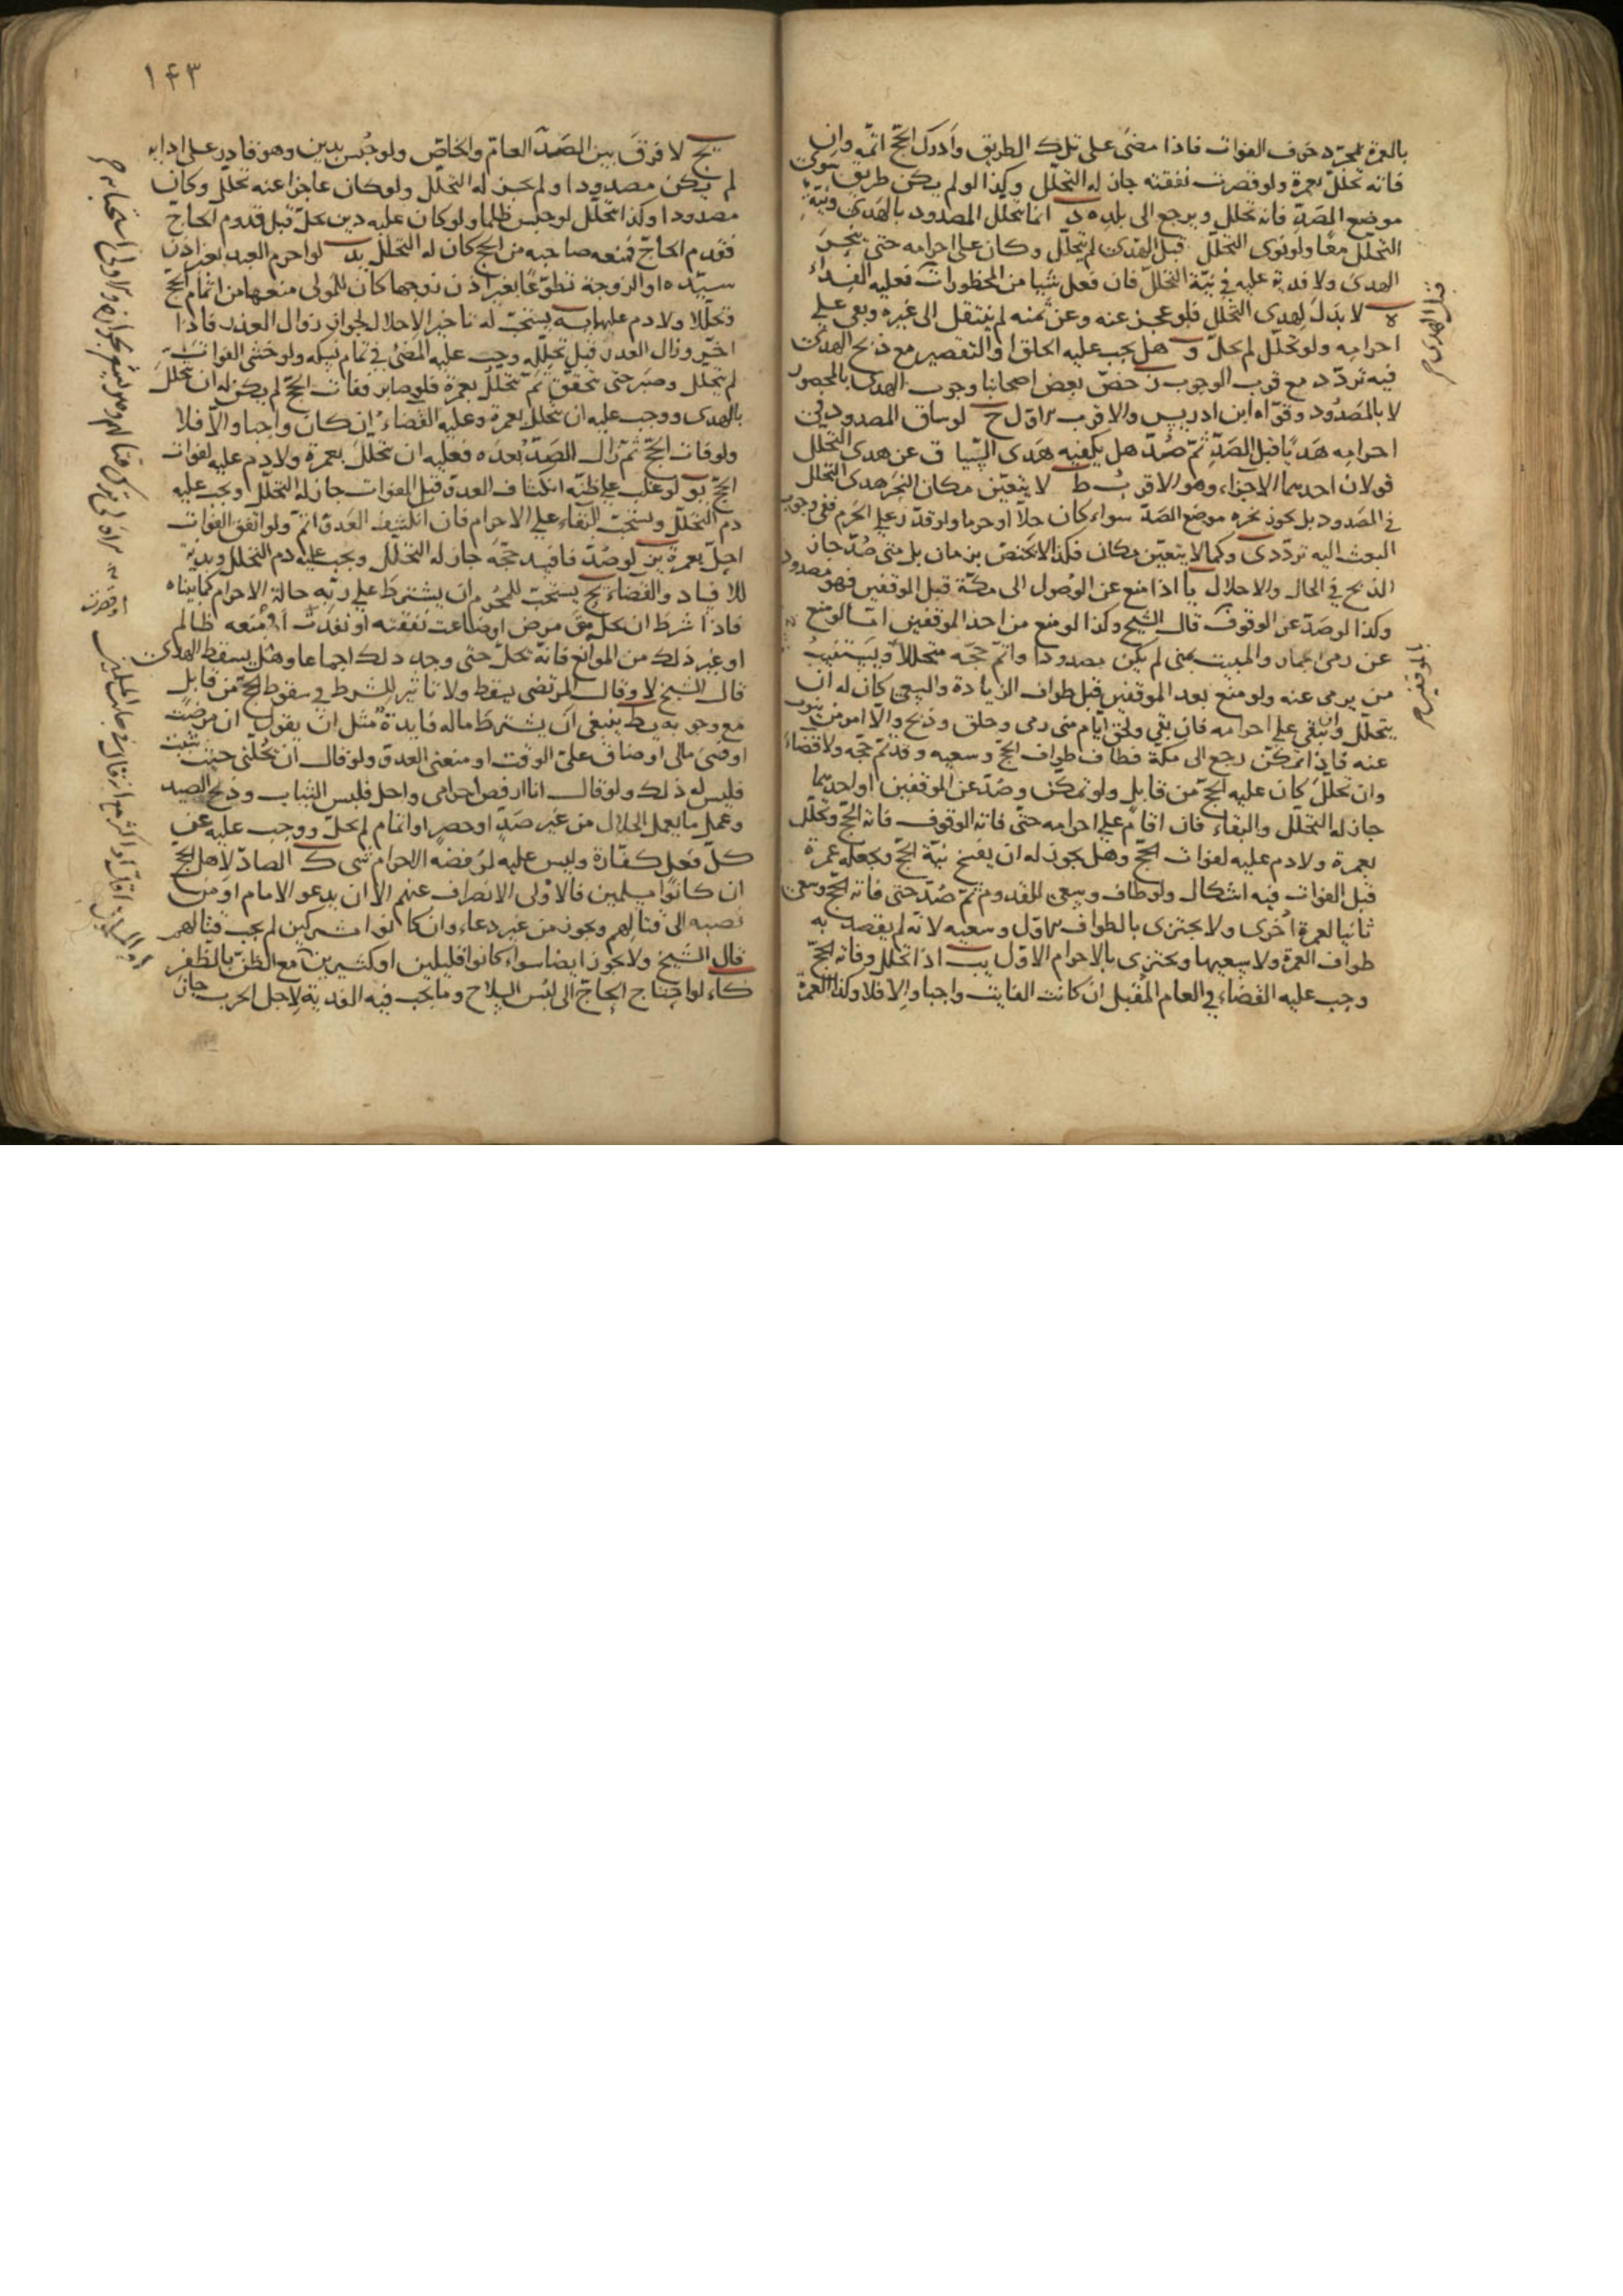 بالعمرة لمجرد خوف الفوات فاذا مضى على تلك الطريق وادرك الحج اتمه وان
فاته تحلل بعمرة ولو قصرت نفقته جاز له التحلل وكذا لو لم يكن طريق سوى
موضع الصد فانه تحلل ويرجع الى بلده د انما تحلل المصدود بالهدى ونية
التحلل معا ولو نوى التحلل قبل الهدى لم يتحلل وكان على احرامه حتى ينحر
الهدى ولا فدية عليه في نية التحلل فان فعل شيا من المحظورات فعليه الفداء
ه لا بدل لهدى التحلل فلو عجز عنه وعن ثمنه لم ينتقل الى غيره وبقى على
احرامه ولو تحلل لم يحل و هل يجب عليه الحلق او التقصير مع ذبح الهدى
فيه تردد مع قرب الوجوب ز خص بعض اصحابنا وجوب الهدى بالمحصور
لا بالمصدود وقواه ابن ادريس والاقرب الاول ح لو ساق المصدود في
احرامه هديا قبل الصد ثم صد هل يكفيه هدى السياق عن هدى التحلل
قولان احدهما الاجزاء وهو الاقرب ط لا يتعين مكان النحر هدى التحلل
في المصدود بل يجوز نحره موضع الصد سواء كان حلا او حرما ولو قدر على الحرم ففى وجوب
البعث اليه تردد ى وكما لا يتعين مكان فكذا لا يختص بزمان بل متى صد جاز
الذبح في الحال والاحلال يا اذا منع عن الوصول الى مكة قبل الموقفين فهو مصدود
وكذا لو صد عن الوقوف قال الشيخ وكذا لو منع من احد الموقفين اما لو منع
عن رمى الجمار والمبيت بمنى لم يكن مصدودا واتم حجه متحللا ويستنيب
من يرمى عنه ولو منع بعد الموقفين قبل طواف الزيادة والسعى كان له ان
يتحلل وان يبقى على احرامه فان بقى ولحق ايام منى رمى وحلق وذبح والا امر من ينوب
عنه فاذا تمكن رجع الى مكة فطاف طواف الحج وسعيه وقد تم حجه ولا قضاء
وان تحلل كان عليه الحج من قابل ولو تمكن وصد عن الموقفين او احدهما
جاز له التحلل والبقاء فان اقام على احرامه حتى فاته الوقوف فاته الحج وتحلل
بعمرة ولا دم عليه لفوات الحج وهل يجوز له ان يفسخ نية الحج ويجعله عمرة
قبل الفوات فيه اشكال ولو طاف وسعى للقدوم ثم صد حتى فاته الحج وسعى
ثانيا لعمرة اخرى ولا يجتزى بالطواف الاول وسعيه لانه لم يقصد به
طواف العمرة ولا سعيها ويجتزى بالاحرام الاول يب اذا تحلل وفاته الحج
وجب عليه القضاء في العام المقبل ان كانت الفايت واجبا والا فلا وكذا العمرة
قبل الهدى
بالموقفين
١٤٣
يج لا فرق بين الصد العام والخاص ولو حبس بدين وهو قادر على ادايه
لم يكن مصدودا ولم يجز له التحلل ولو كان عاجزا عنه تحلل وكان
مصدودا وكذا تحلل لو حبس ظلما ولو كان عليه دين يحل قبل قدوم الحاج
فقدم الحاج فمنعه صاحبه من الحج كان له التحلل يد لو احرم العبد بغير اذن
سيده او الزوجة تطوعا بغير اذن زوجها كان للمولى منعهما من اتمام الحج
وتحللا ولا دم عليهما يه يستحب له تاخير الاحلال لجواز زوال العذر فاذا
اخر وزال العذر قبل تحلله وجب عليه المضى في تمام نسكه ولو خشى الفوات
لم يتحلل وصبر حتى تحقق ثم تتحلل بعمرة فلو صابر وفات الحج لم يكن له ان يتحلل
بالهدى ووجب عليه ان تتحلل بعمرة وعليه القضاء ان كان واجبا والا فلا
ولو فات الحج ثم زال الصد بعده فعليه ان تتحلل بعمرة ولا دم عليه لفوات
الحج يو لو غلب على ظنه انكشاف العدو قبل الفوات جاز له التحلل ويجب عليه
دم التحلل ويستحب البقاء على الاحرام فان انكشف العدو اتم ولو اتفق الفوات
احل بعمرة يز لو صد فافسد حجه جاز له التحلل ويجب عليه دم التحلل وبدنة
للافساد والقضاء يح يستحب للمحرم ان يشترط على ربه حالة الاحرام كما بيناه
فاذا شرط ان يحل متى مرض او ضاعت نفقته او نفدت او منعه ظالم
او غير ذلك من الموانع فانه تحلل حتى وجد ذلك اجماعا وهل يسقط الهدى
قال الشيخ لا وقال المرتضى يسقط ولا تاثير للشرط في سقوط الحج من قابل
مع وجوبه يط ينبغى ان يشترط ماله فايدة مثل ان يقول ان مرضت
او فنى مالى او ضاق على الوقت او منعنى العدو ولو قال ان تحلنى حيث شئت
فليس له ذلك ولو قال انا ارفض احرامى واحل فلبس الثياب وذبح الصيد
وعمل ما يعمل الحلال من غير صد او حصر او اتمام لم يحل ووجب عليه عن
كل فعل كفارة وليس عليه لرفضه الاحرام شى ك الصاد لاهل الحج
ان كانوا مسلمين فالاولى الانصراف عنهم الا ان يدعو الامام او من
نصبه الى قتالهم ويجوز من غير دعاء وان كانوا مشركين لم يجب قتالهم
قال الشيخ ولا يجوز ايضا سواء كانوا قليلين او كثيرين مع الظن بالظفر
كاء لو احتاج الحاج الى لبس السلاح وما يجب فيه الفدية لاجل الحرب جاز